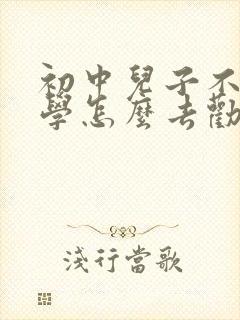 初中兒子不
學怎麼去勸
淺行當歌